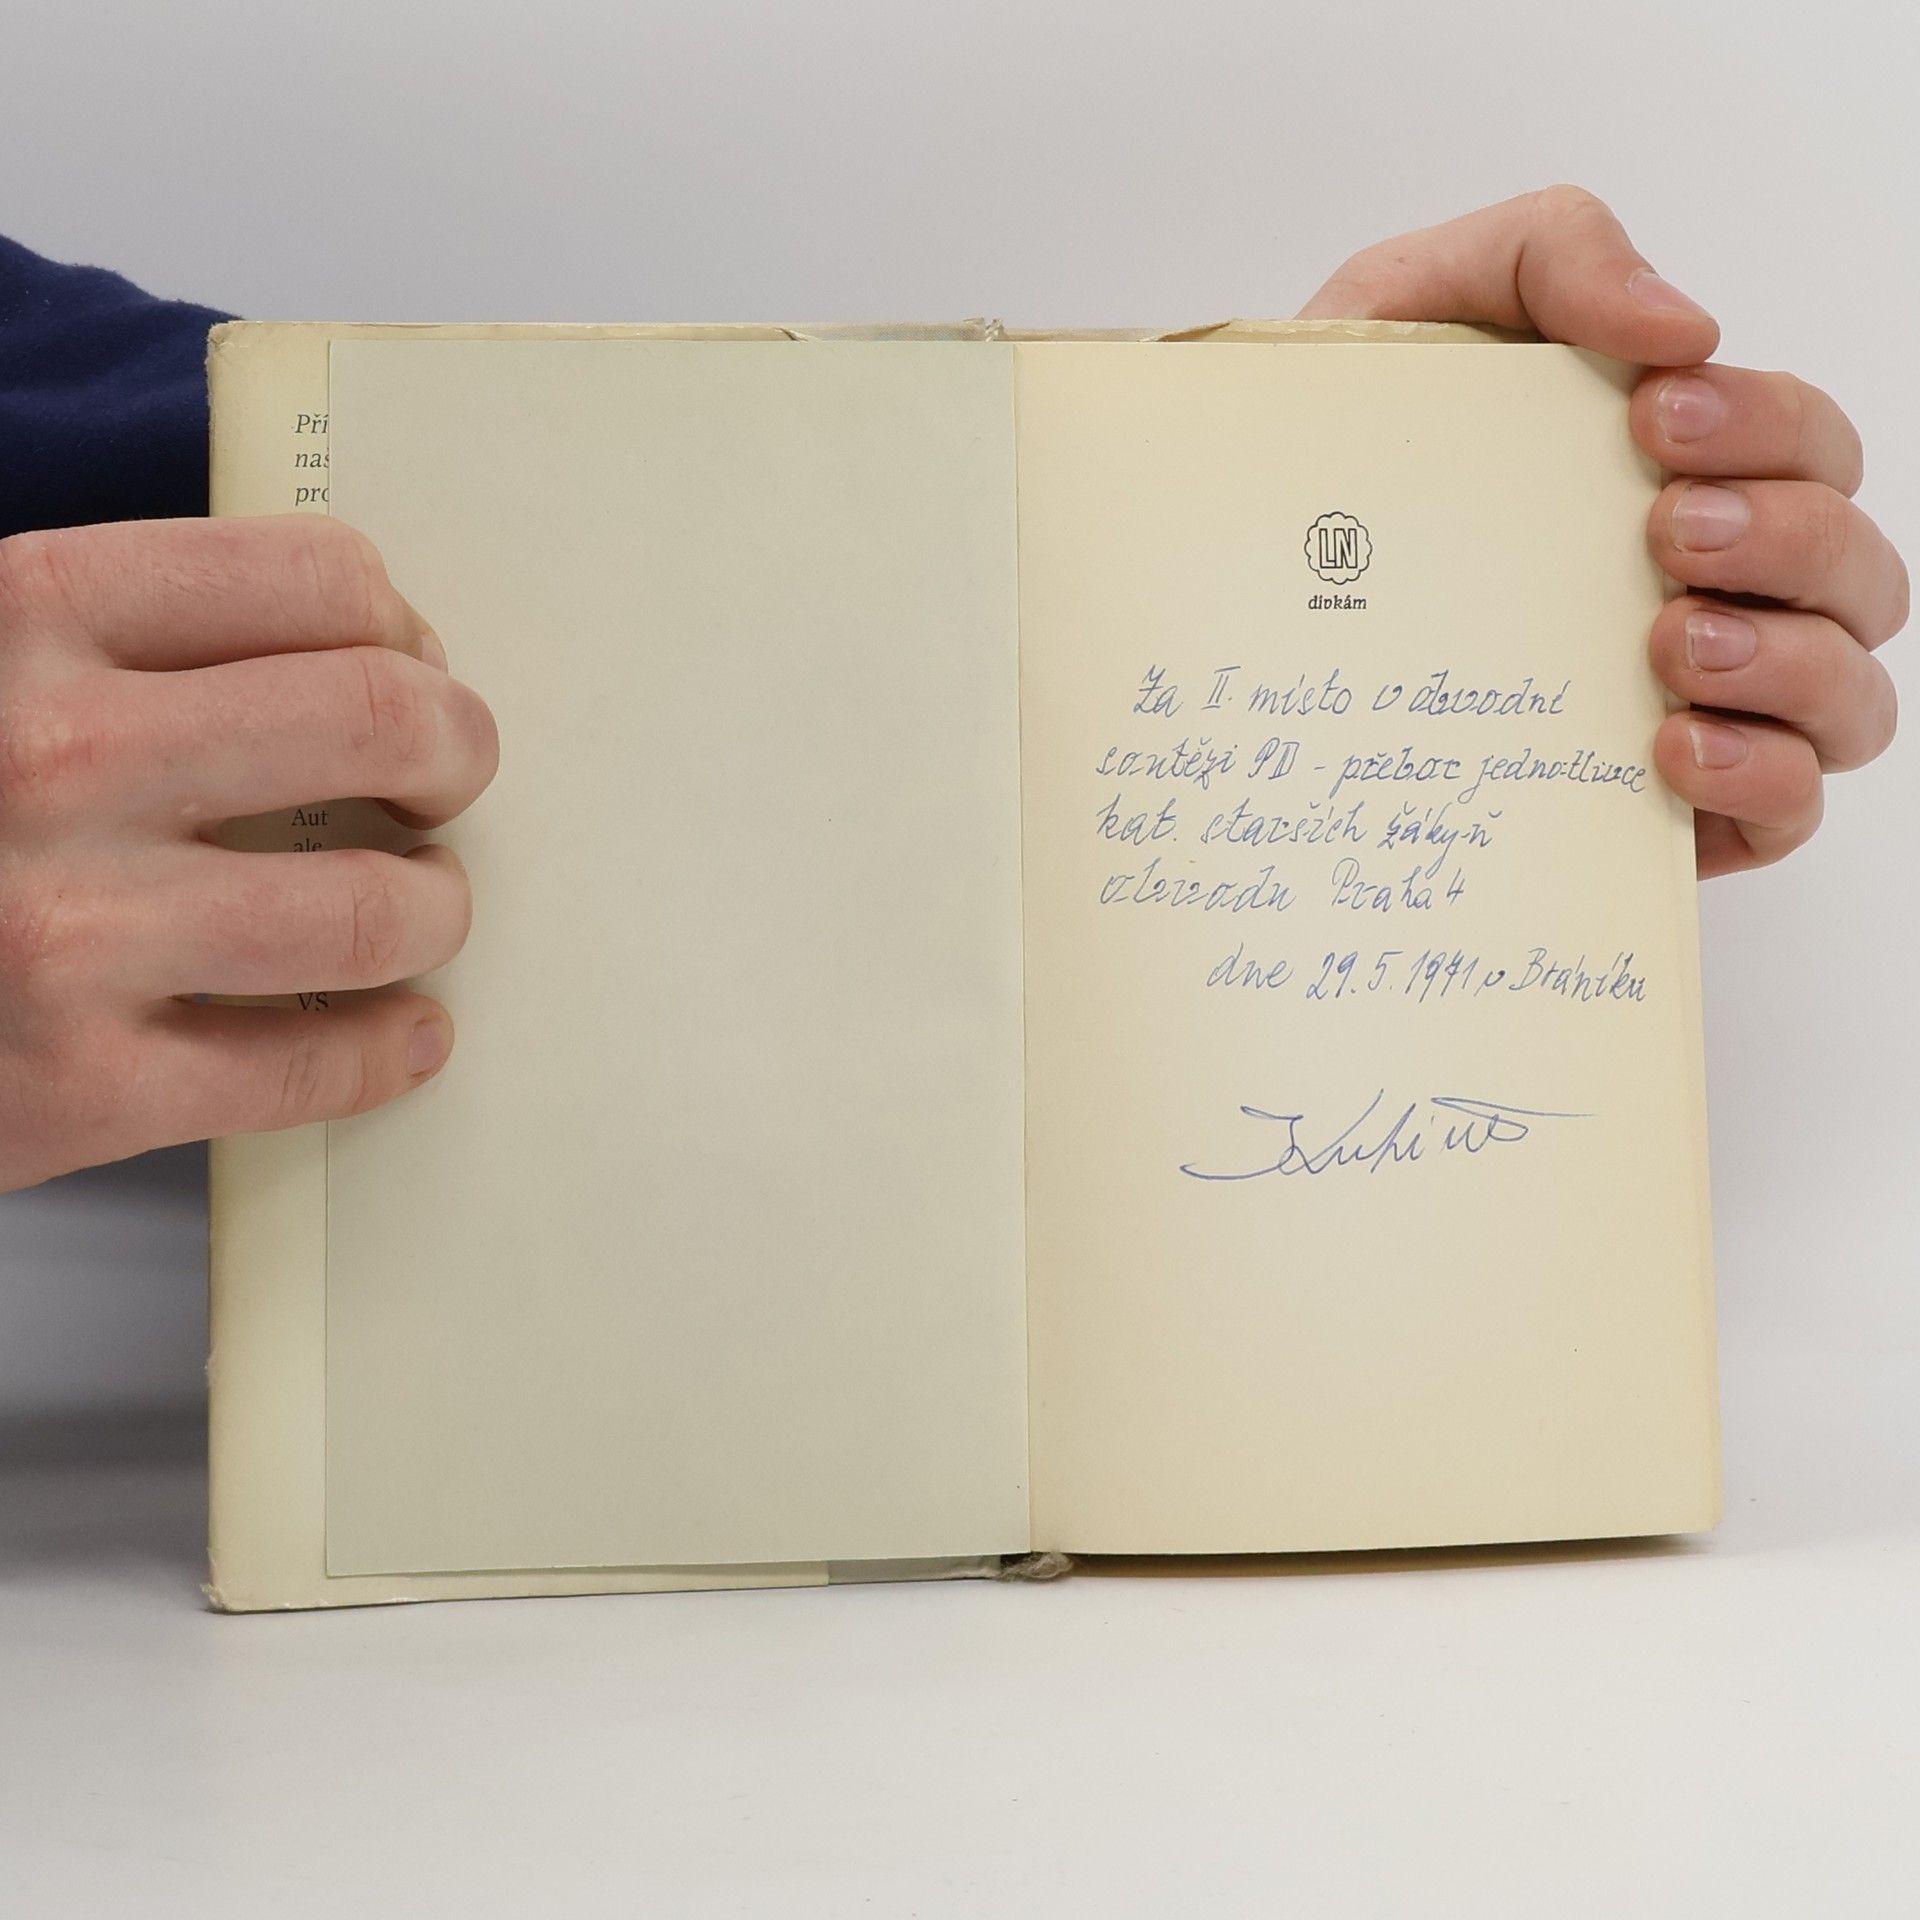 Pří
naš
pro
Aut
ale
VS
LN
dívkám
Za II. místo v obvodní
soutěži PD - přebor jednotlivce
kat. starších žákyň
obvodu Praha 4
dne 29.5.1971 v Bráníku